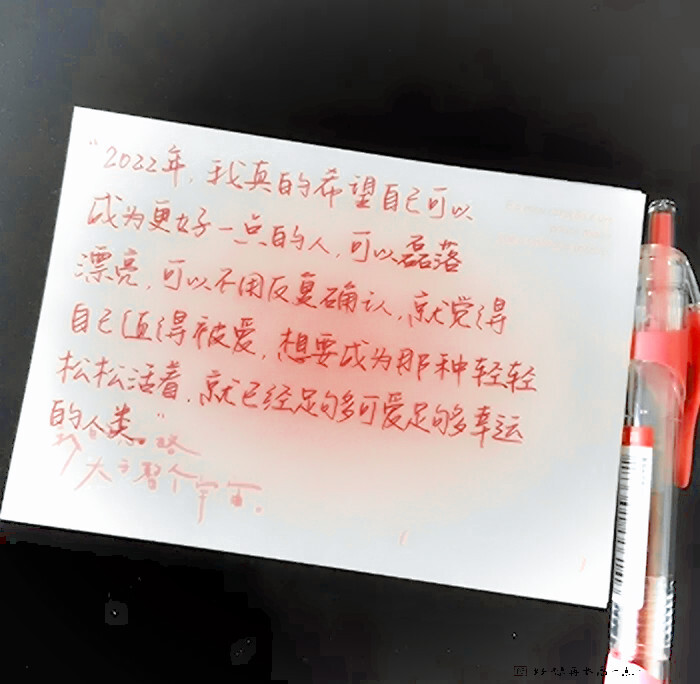 “2022年，我真的希望自己可以
成为更好一点的人，可以磊落
漂亮，可以不用反复确认，就觉得
自己值得被爱，想要成为那种轻轻
松松活着，就已经足够可爱足够幸运
的人类”
大于整个宇宙。